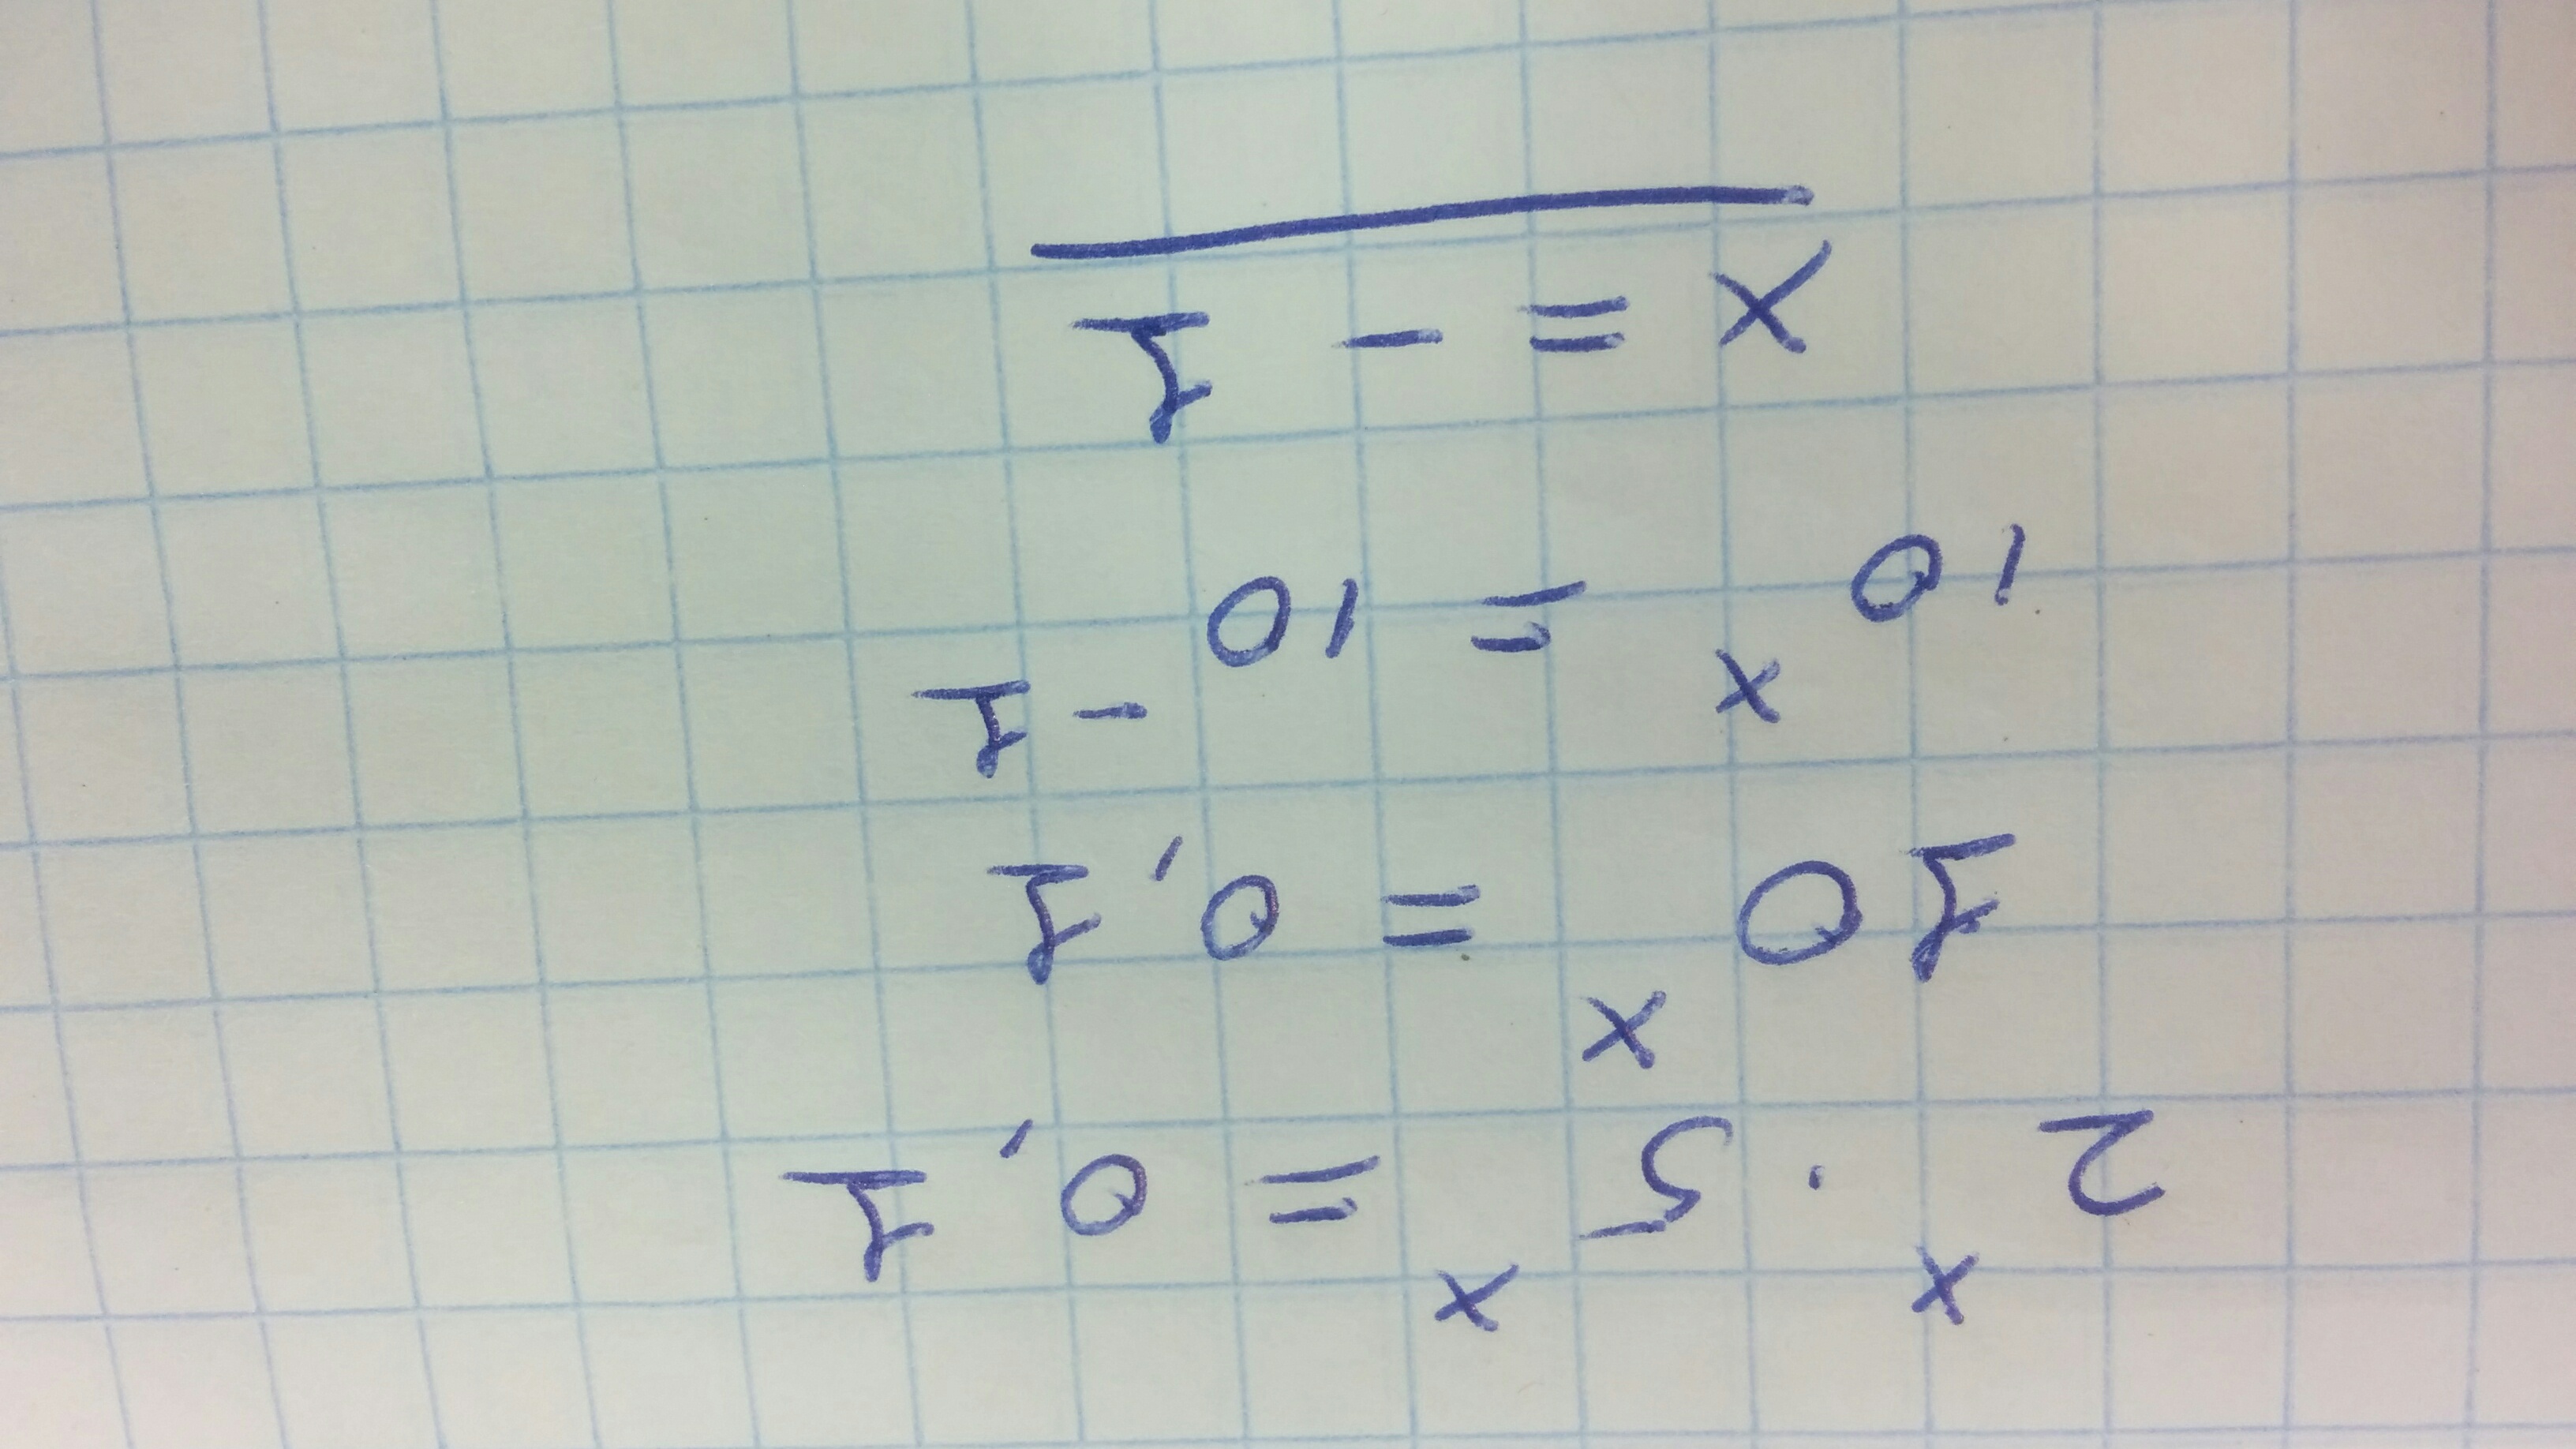 2ˣ · 5ˣ = 0,1
10ˣ = 0,1
10ˣ = 10⁻¹
x = -1